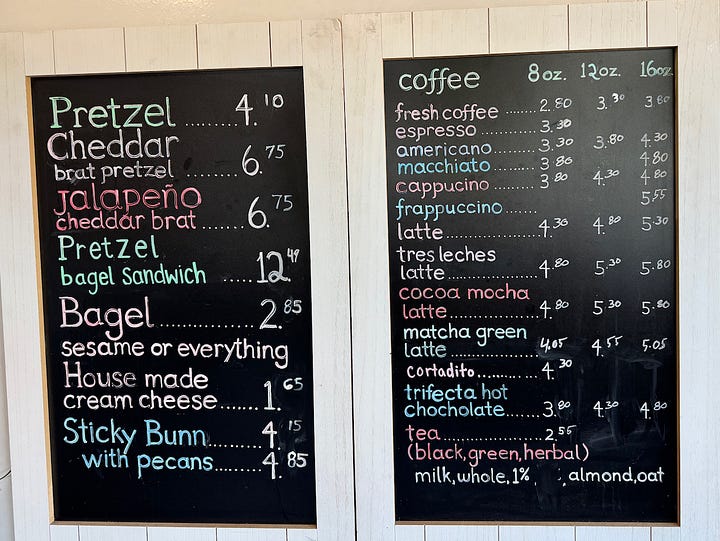 Pretzel ....... 4.10
Cheddar
brat pretzel ....... 6.75
Jalapeño
cheddar brat ....... 6.75
Pretzel
bagel sandwich ...... 12.49
Bagel .............. 2.85
sesame or everything
House made
cream cheese ...... 1.65
Sticky Bunn ........ 4.15
with pecans ....... 4.85
coffee 8oz. 12oz. 16oz.
fresh coffee ....... 2.80 3.30 3.80
espresso ........... 3.30
americano ......... 3.30 3.80 4.30
macchiato ......... 3.80 4.80
cappucino ......... 3.80 4.30 4.80
frappuccino ...... 5.55
latte ................. 4.30 4.80 5.30
tres leches
latte ................. 4.80 5.30 5.80
cocoa mocha
latte ................. 4.80 5.30 5.80
matcha green
latte ................. 4.05 4.55 5.05
cortadito .......... 4.30
trifecta hot
chocholate ...... 3.80 4.30 4.80
tea .................... 2.55
(black, green, herbal)
milk, whole, 1%, , almond, oat